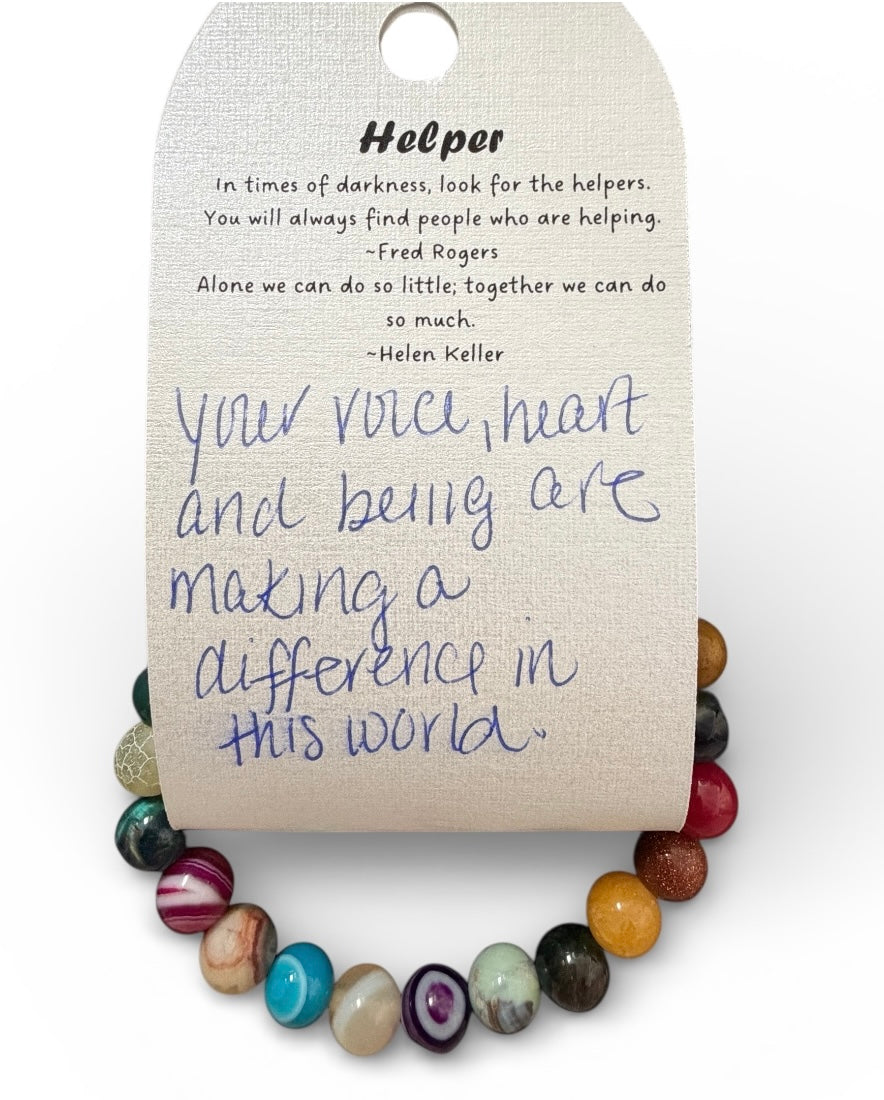 Helper
In times of darkness, look for the helpers.
You will always find people who are helping.
~Fred Rogers
Alone we can do so little; together we can do
so much.
~Helen Keller
your voice, heart
and being are
making a
difference in
this world.